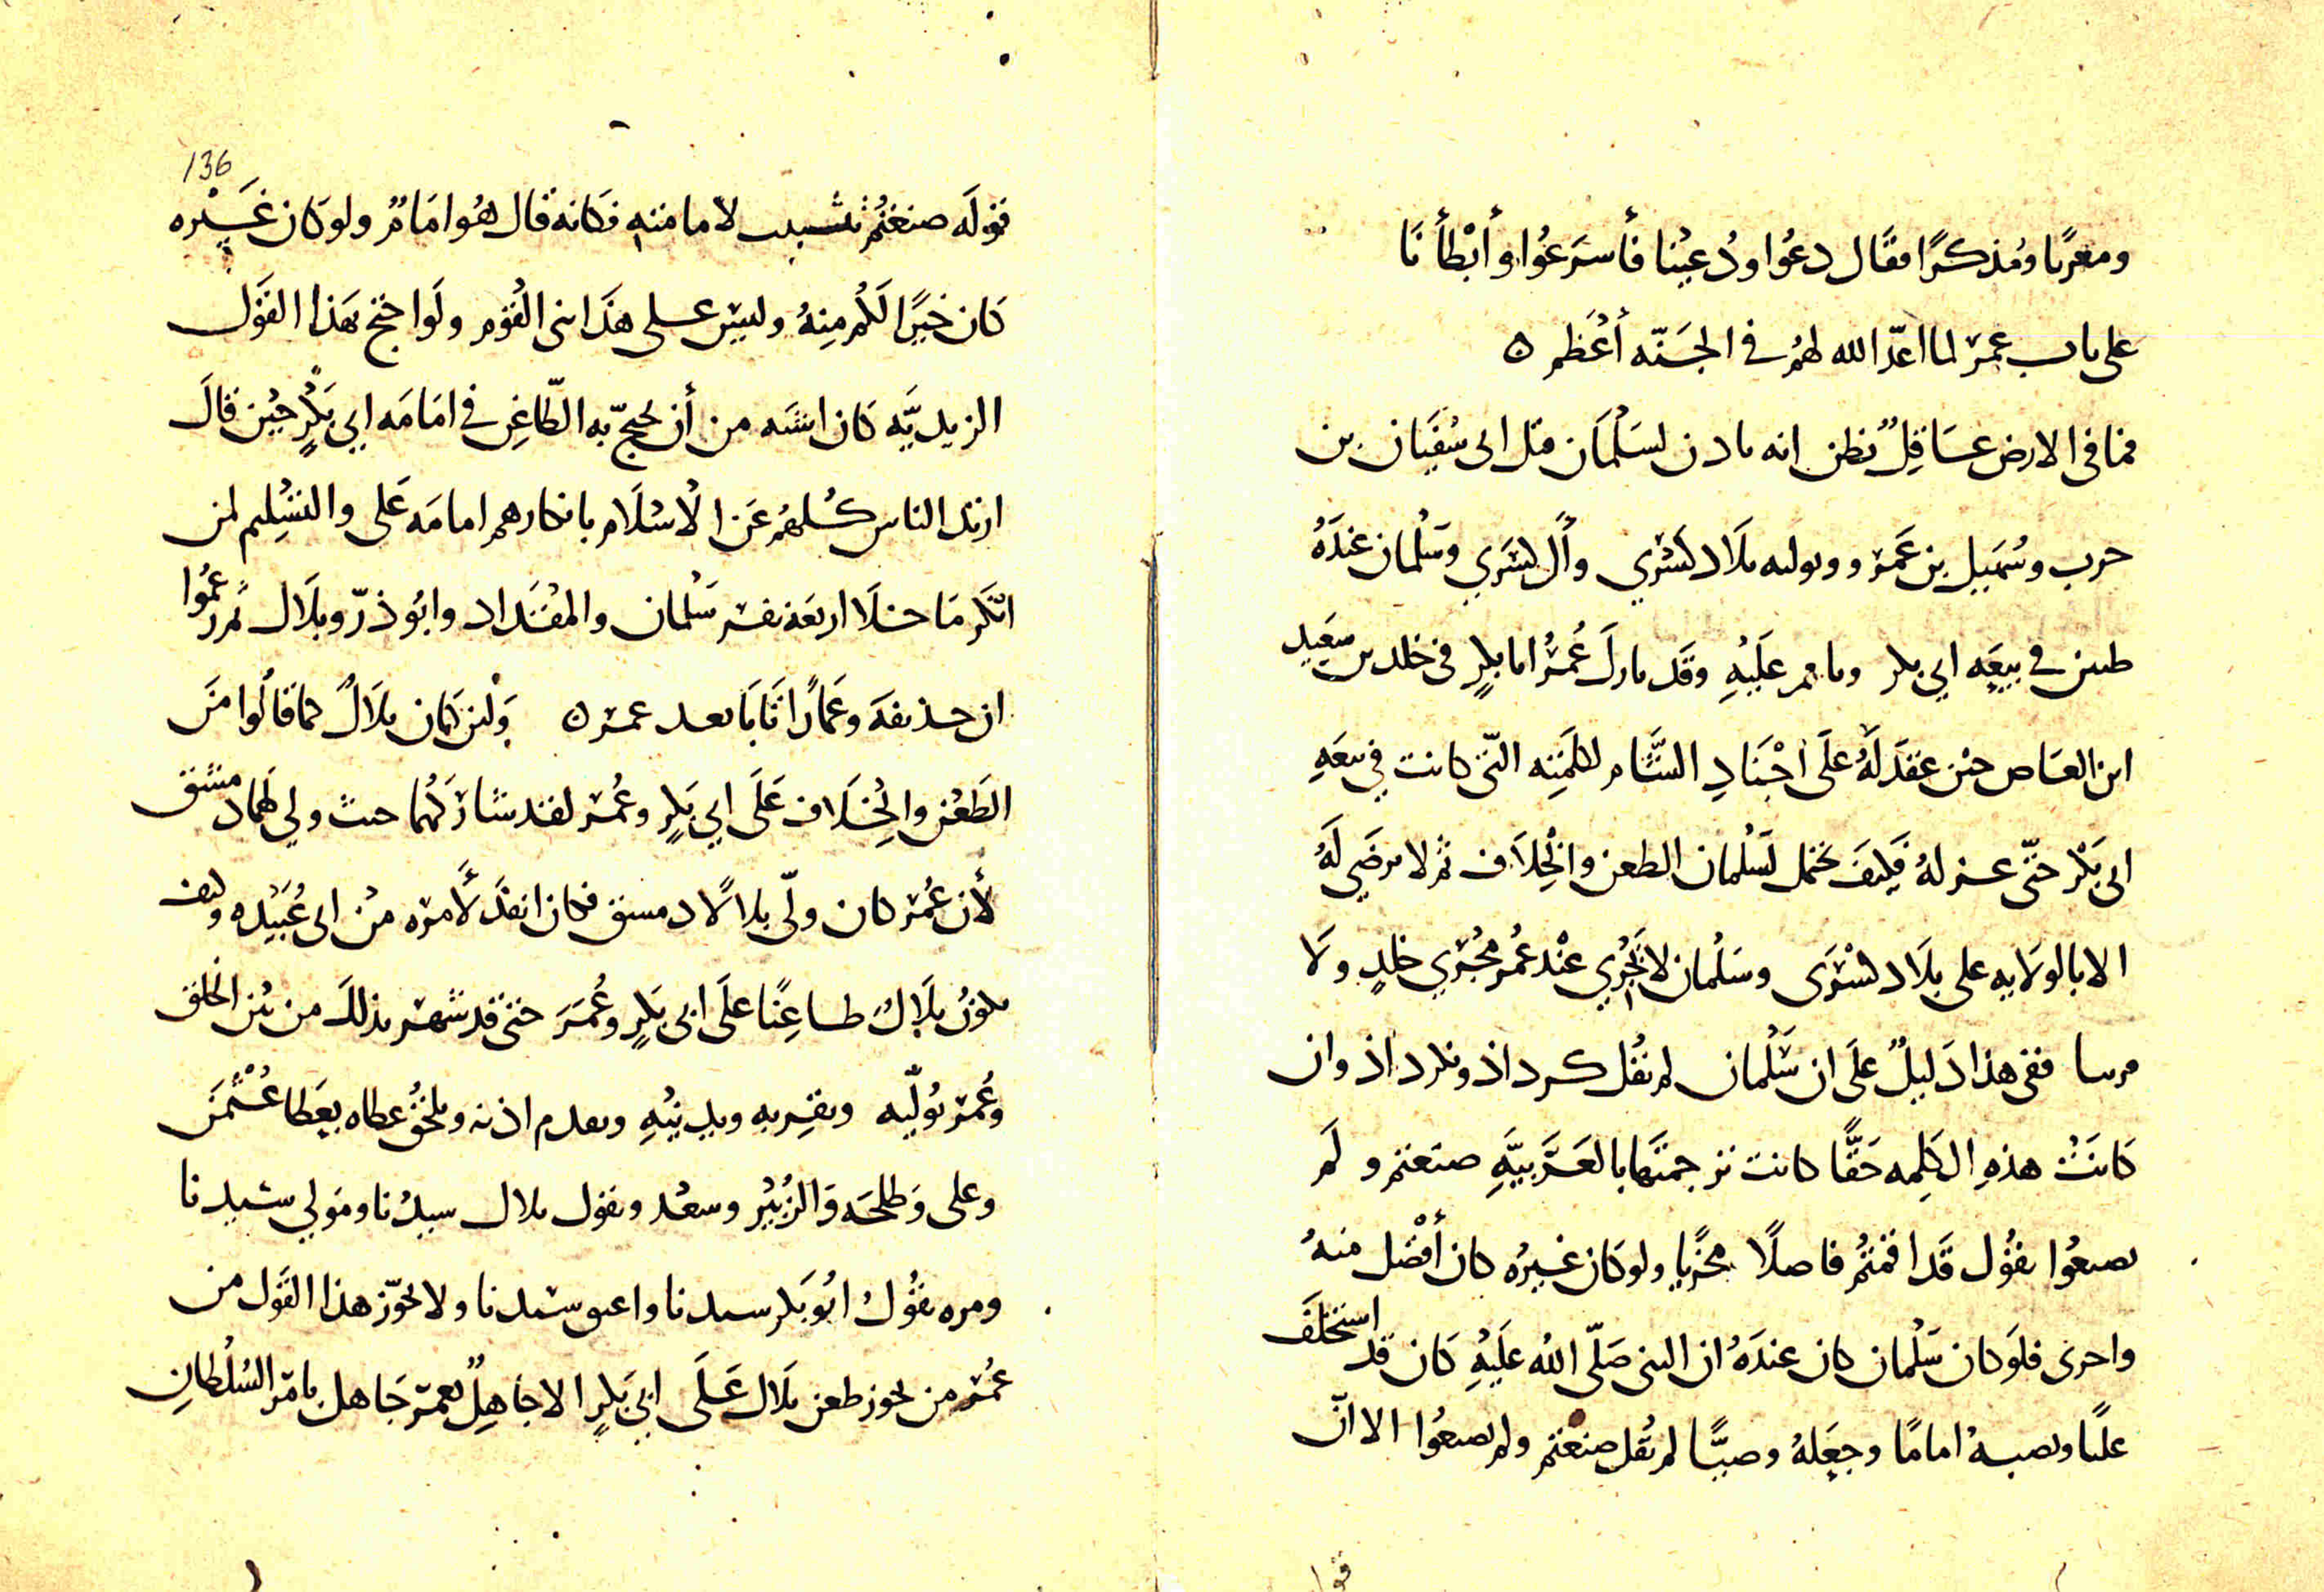 ومعرىا ومُذكرًا فقال دعُوا ودُعِيْنا فأسرَعُوا وأبْطأنَا
على باب عمر لما اعدّ الله لهُم في الجَنّه أعْظم ه
فما في الارض عَاقِلٌ يظن انه ياذن لسَلْمَان قبل ابى سُفيَان بن
حرب وسُهَيل بن عَمرو وىوليه بلاد كسْرَي وآل كسْرَي وسَلْمان عندَهُ
طعن في بيعَه ابي بكر وما عليْهِ وقد عُمَرُ ابا بكرٍ في خلد بن سَعِيد
ابن العَاص حين عقدَ لَهُ علَى اجْنَادِ الشَّام لكلمَتِه التي كانت في بيعَهِ
ابي بَكْر حتّى عزلهُ فكيفَ يحتمل لسَلْمان الطعن والْخِلاَف ثم لا يرضَي لَهُ
الا بالولايه على بلاد كسْرَى وسَلْمان لا يَجْري عنْد عُمر مُجْرَي خلدٍ ولا
قريبا ففي هذا دَليلٌ علَى ان سَلْمان لم يقُل كرداذ ونكرداذ وان
كانَتْ هذهِ الكلِمه حَقًّا كانت ترجمتَها بالعَرَبيَّهِ صنعتم ولَم
تصنعُوا يقُول قَد اقمتُم فاضلًا مجزيا ولو كان غيرُه كان أفْضَل منهُ
واحرى فلَو كان سَلْمان كان عندَهُ ان النبى صَلّى الله علَيْهِ كان قد استخلَفَ
عليًا ونصبهُ امامًا وجعَلهُ وصيًّا لم يقُل صنعتم ولم تصنعُوا الا انّ
قوله صنعتُم تثبيت لامامته فكانه قال هُو امَامٌ ولو كان غَيْره
كان خيرًا لَكُم مِنهُ وليسَ على هذَا بنى القُوم ولَو احتج بهَذا القَول
الزيديَّه كان اشبَه من أن يحتجّ به الطّاعِن في امَامَه ابي بَكْرٍ حِيْن قالَ
ارتد الناس كُلهُم عَن الْاسْلَام بانكارهم امامَه عَلى والتسْلِيم لمن
انكر مَا خلَا اربعَه نفر سَلْمان والمقْدَاد وابُو ذرّ وبلَال ثم زعمُوا
ان حذيفَه وعَمارًا تَابَا بعد عمر ه ولئن كان بلَالٌ كما قالُوا مَن
الطَعْن والخِلَاف عَلَى ابي بَكرٍ وعُمر لقد شارَكهُما حيث ولي لهُما دمشق
لأن عُمر كان ولّى بلالًا دمسق فكان انفذ لأَمره منْ ابى عُبَيْده وكيف
يكونُ بلَالٌ طاعِنًا علَى ابى بَكرٍ وعُمَرَ حتى قد شهر بذلك من بَيْن الخلق
وعُمر يُولّيه ويقربه ويدنِيْهِ ويقدم اذنه ويلحقُ عطاه بعَطا عُثْمَن
وعلى وَطلحَه وَالزُبَيْر وسعْد ويقول بلال سيدُنا ومَولي سيدنا
ومره يقُولُ ابُو بَكر سيدنا واعتق سيدنا ولا يجوّز هذا القَول من
عُمَر من يجوز طعن بلَال عَلَى ابي بَكرٍ الا جَاهِلٌ بعمرَ جَاهل بامر السُلْطانِ
136